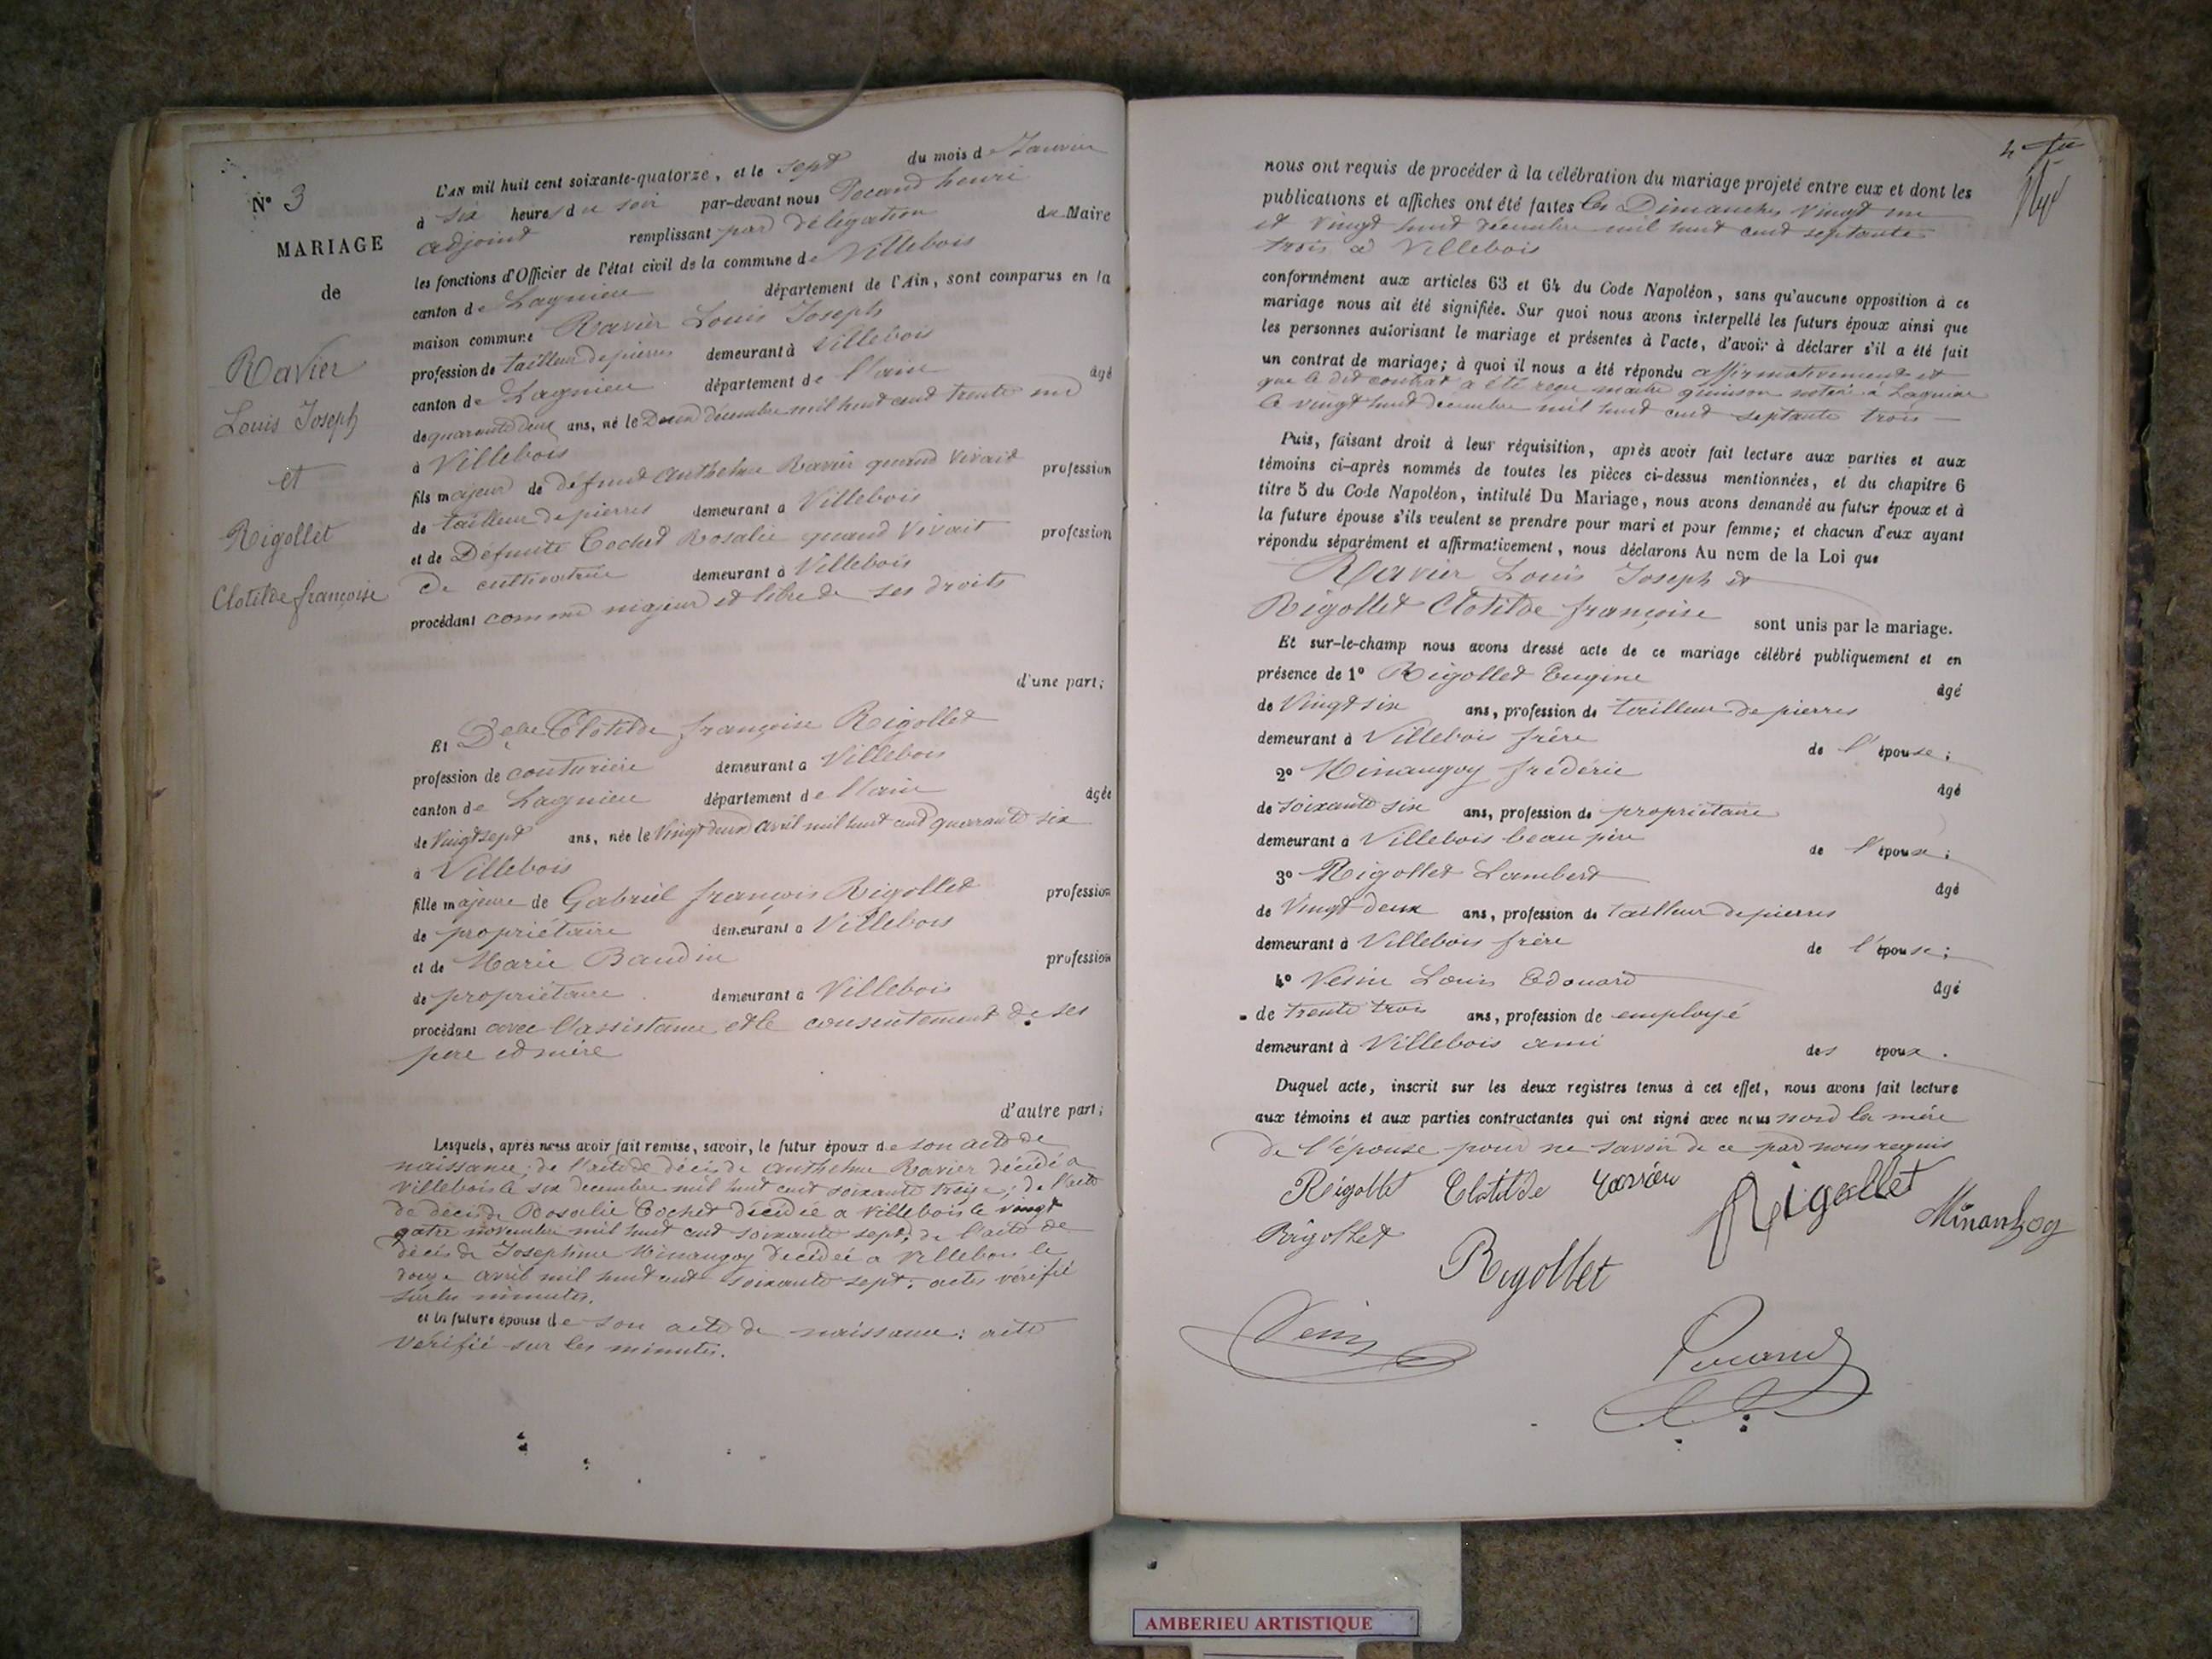 N° 3
MARIAGE
de
Ravier
Louis Joseph
et
Rigollet
Clotilde françoise
L'AN mil huit cent soixante-quatorze, et le sept du mois de Janvier
à six heures du soir par-devant nous Pocand henri
adjoint remplissant par délégation du Maire
les fonctions d'Officier de l'état civil de la commune de Villebois
canton de Lagnieu département de l'Ain, sont comparus en la
maison commune Ravier Louis Joseph
profession de tailleur de pierres demeurant à Villebois
canton de Lagnieu département de l'ain âgé
de quarante deux ans, né le Deux décembre mil huit cent trente un
à Villebois
fils majeur de défunt Anthelme Ravier quand vivait profession
de tailleur de pierres demeurant à Villebois
et de Défunte Cochet Rosalie quand Vivait profession
de cultivatrice demeurant à Villebois
procédant comme majeur et libre de ses droits
d'une part;
Et Delle Clotilde françoise Rigollet
profession de couturière demeurant a Villebois
canton de Lagnieu département de l'ain âgée
de Vingt sept ans, née le Vingt deux avril mil huit cent quarante six
à Villebois
fille majeure de Gabriel françois Rigollet profession
de propriétaire demeurant a Villebois
et de Marie Baudin profession
de propriétaire demeurant a Villebois
procédant avec l'assistance et le consentement de ses
père et mère
d'autre part;
Lesquels, après nous avoir fait remise, savoir, le futur époux de son acte de
naissance; de l'acte de décès de Anthelme Ravier décédé a
Villebois le six decembre mil huit cent soixante treize; de l'acte
de décès de Rosalie Cochet décédée a Villebois le vingt
quatre novembre mil huit cent soixante sept; de l'acte de
décès de Josephine Minangoy décédée a Villebois le
douze avril mil huit cent soixante sept; actes vérifié
sur les minutes.
et la future épouse de son acte de naissance: acte
vérifié sur les minutes.
nous ont requis de procéder à la célébration du mariage projeté entre eux et dont les
publications et affiches ont été faites les Dimanches Vingt un
et Vingt huit décembre mil huit cent septante
trois à Villebois
conformément aux articles 63 et 64 du Code Napoléon, sans qu'aucune opposition à ce
mariage nous ait été signifiée. Sur quoi nous avons interpellé les futurs époux ainsi que
les personnes autorisant le mariage et présentes à l'acte, d'avoir à déclarer s'il a été fait
un contrat de mariage; à quoi il nous a été répondu affirmativement et
que le dit contrat a été reçu maitre notaire à Lagnieu
le vingt huit decembre mil huit cent septante trois
Puis, faisant droit à leur réquisition, après avoir fait lecture aux parties et aux
témoins ci-après nommés de toutes les pièces ci-dessus mentionnées, et du chapitre 6
titre 5 du Code Napoléon, intitulé Du Mariage, nous avons demandé au futur époux et à
la future épouse s'ils veulent se prendre pour mari et pour femme; et chacun d'eux ayant
répondu séparément et affirmativement, nous déclarons Au nom de la Loi que
Ravier Louis Joseph et
Rigollet Clotilde françoise sont unis par le mariage.
Et sur-le-champ nous avons dressé acte de ce mariage célébré publiquement et en
présence de 1° Rigollet Eugène âgé
de Vingt six ans, profession de tailleur de pierres
demeurant à Villebois frère de l'épouse;
2° Minangoy frédéric âgé
de soixante six ans, profession de propriétaire
demeurant à Villebois beau père de l'époux;
3° Rigollet Lambert âgé
de Vingt-deux ans, profession de tailleur de pierres
demeurant à Villebois frère de l'épouse;
4° Louis Edouard âgé
de trente trois ans, profession de employé
demeurant à Villebois ami des époux.
Duquel acte, inscrit sur les deux registres tenus à cet effet, nous avons fait lecture
aux témoins et aux parties contractantes qui ont signé avec nous non la mère
de l'épouse pour ne savoir de ce par nous requis
Rigollet Clotilde Rigollet
Rigollet Rigollet
AMBERIEU ARTISTIQUE